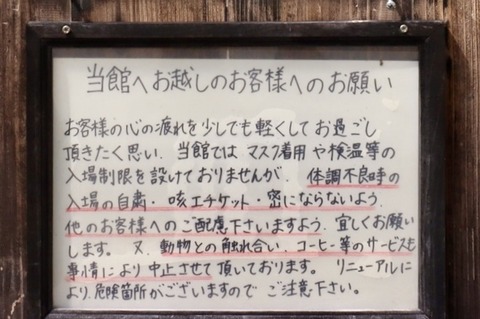 当館へお越しのお客様へのお願い
お客様の心の疲れを少しでも軽くしてお過ごし
頂きたく思い、当館ではマスク着用や検温等の
入場制限を設けておりませんが、体調不良時の
入場の自粛・咳エチケット・密にならないよう、
他のお客様へのご配慮下さいますよう、宜しくお願い
します。又、動物との触れ合い、コーヒー等のサービスも
事情により中止させて頂いております。リニューアルに
より、危険箇所がございますのでご注意下さい。